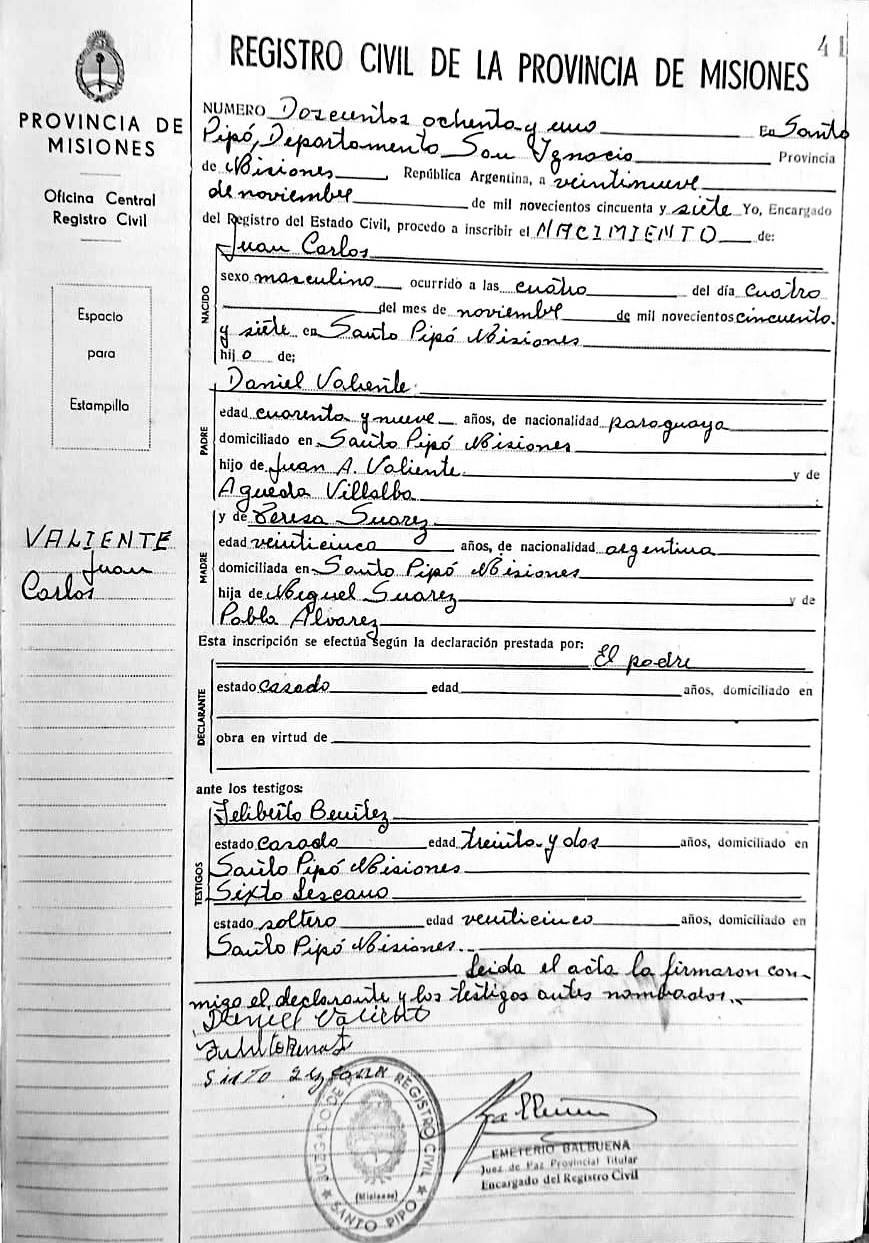 41
REGISTRO CIVIL DE LA PROVINCIA DE MISIONES
PROVINCIA DE
MISIONES
Oficina Central
Registro Civil
Espacio
para
Estampilla
VALIENTE
Juan
Carlos
NUMERO Doscientos ochenta y uno En Santo
Pipó, Departamento San Ignacio Provincia
de Misiones, República Argentina, a veintinueve
de noviembre de mil novecientos cincuenta y siete Yo, Encargado
del Registro del Estado Civil, procedo a inscribir el NACIMIENTO de:
NACIDO
Juan Carlos
sexo masculino ocurrido a las cuatro del día cuatro
del mes de noviembre de mil novecientos cincuenta.
y siete en Santo Pipó Misiones
hijo de;
PADRE
Daniel Valiente
edad cuarenta y nueve años, de nacionalidad paraguaya
domiciliado en Santo Pipó Misiones
hijo de Juan A. Valiente y de
Agueda Villalba
MADRE
y de Teresa Suarez
edad veinticinco años, de nacionalidad argentina
domiciliada en Santo Pipó Misiones
hija de Miguel Suarez y de
Pabla Alvarez
Esta inscripción se efectúa según la declaración prestada por: El padre
DECLARANTE
estado casado edad años, domiciliado en
obra en virtud de
ante los testigos:
TESTIGOS
Feliberto Benitez
estado casado edad treinta y dos años, domiciliado en
Santo Pipó Misiones
Sixto Lescano
estado soltero edad veinticinco años, domiciliado en
Santo Pipó Misiones.
Leida el acta la firmaron con-
migo el declarante y los testigos antes nombrados.
Daniel Valiente
JUZGADO DE REGISTRO CIVIL
(Misiones)
SANTO PIPO
EMETERIO BALBUENA
Juez de Paz Provincial Titular
Encargado del Registro Civil